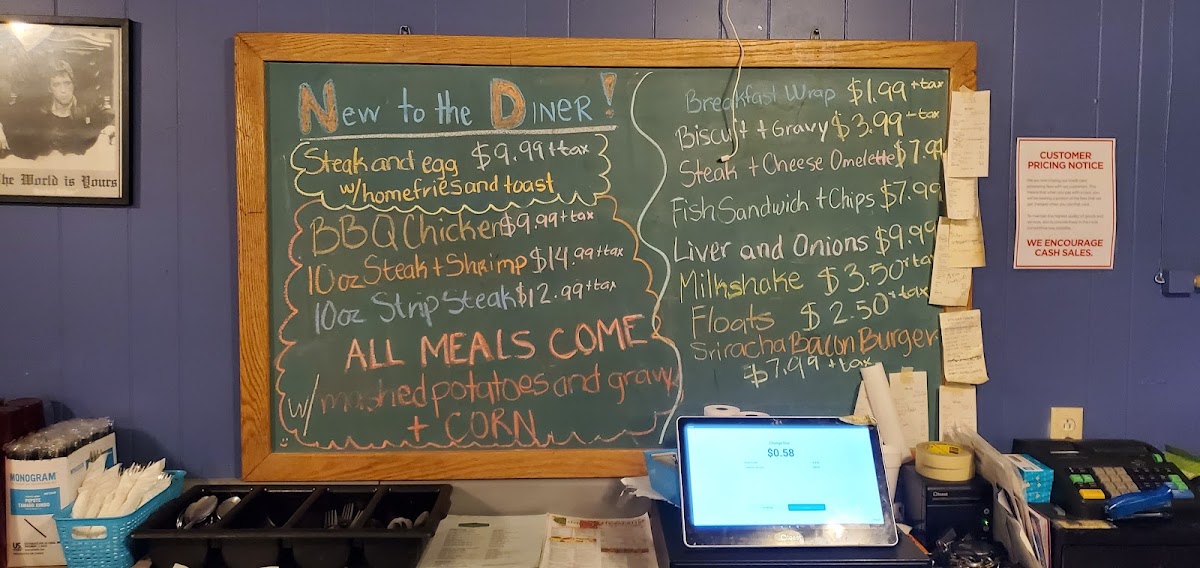 The World is Yours
NEW to the DINER!
Steak and egg $9.99+tax
w/homefries and toast
BBQ Chicken $9.99+tax
10oz Steak + Shrimp $14.99+tax
10oz Strip Steak $12.99+tax
ALL MEALS COME
w/ mashed potatoes and gravy
+ CORN
Breakfast Wrap $1.99+tax
Biscuit + Gravy $3.99+tax
Steak + Cheese Omelette $7.99
Fish Sandwich + Chips $7.99
Liver and Onions $9.99
Milkshake $3.50+tax
Floats $2.50+tax
Sriracha Bacon Burger
$7.99+tax
CUSTOMER
PRICING NOTICE
WE ENCOURAGE
CASH SALES.
MONOGRAM
$0.58